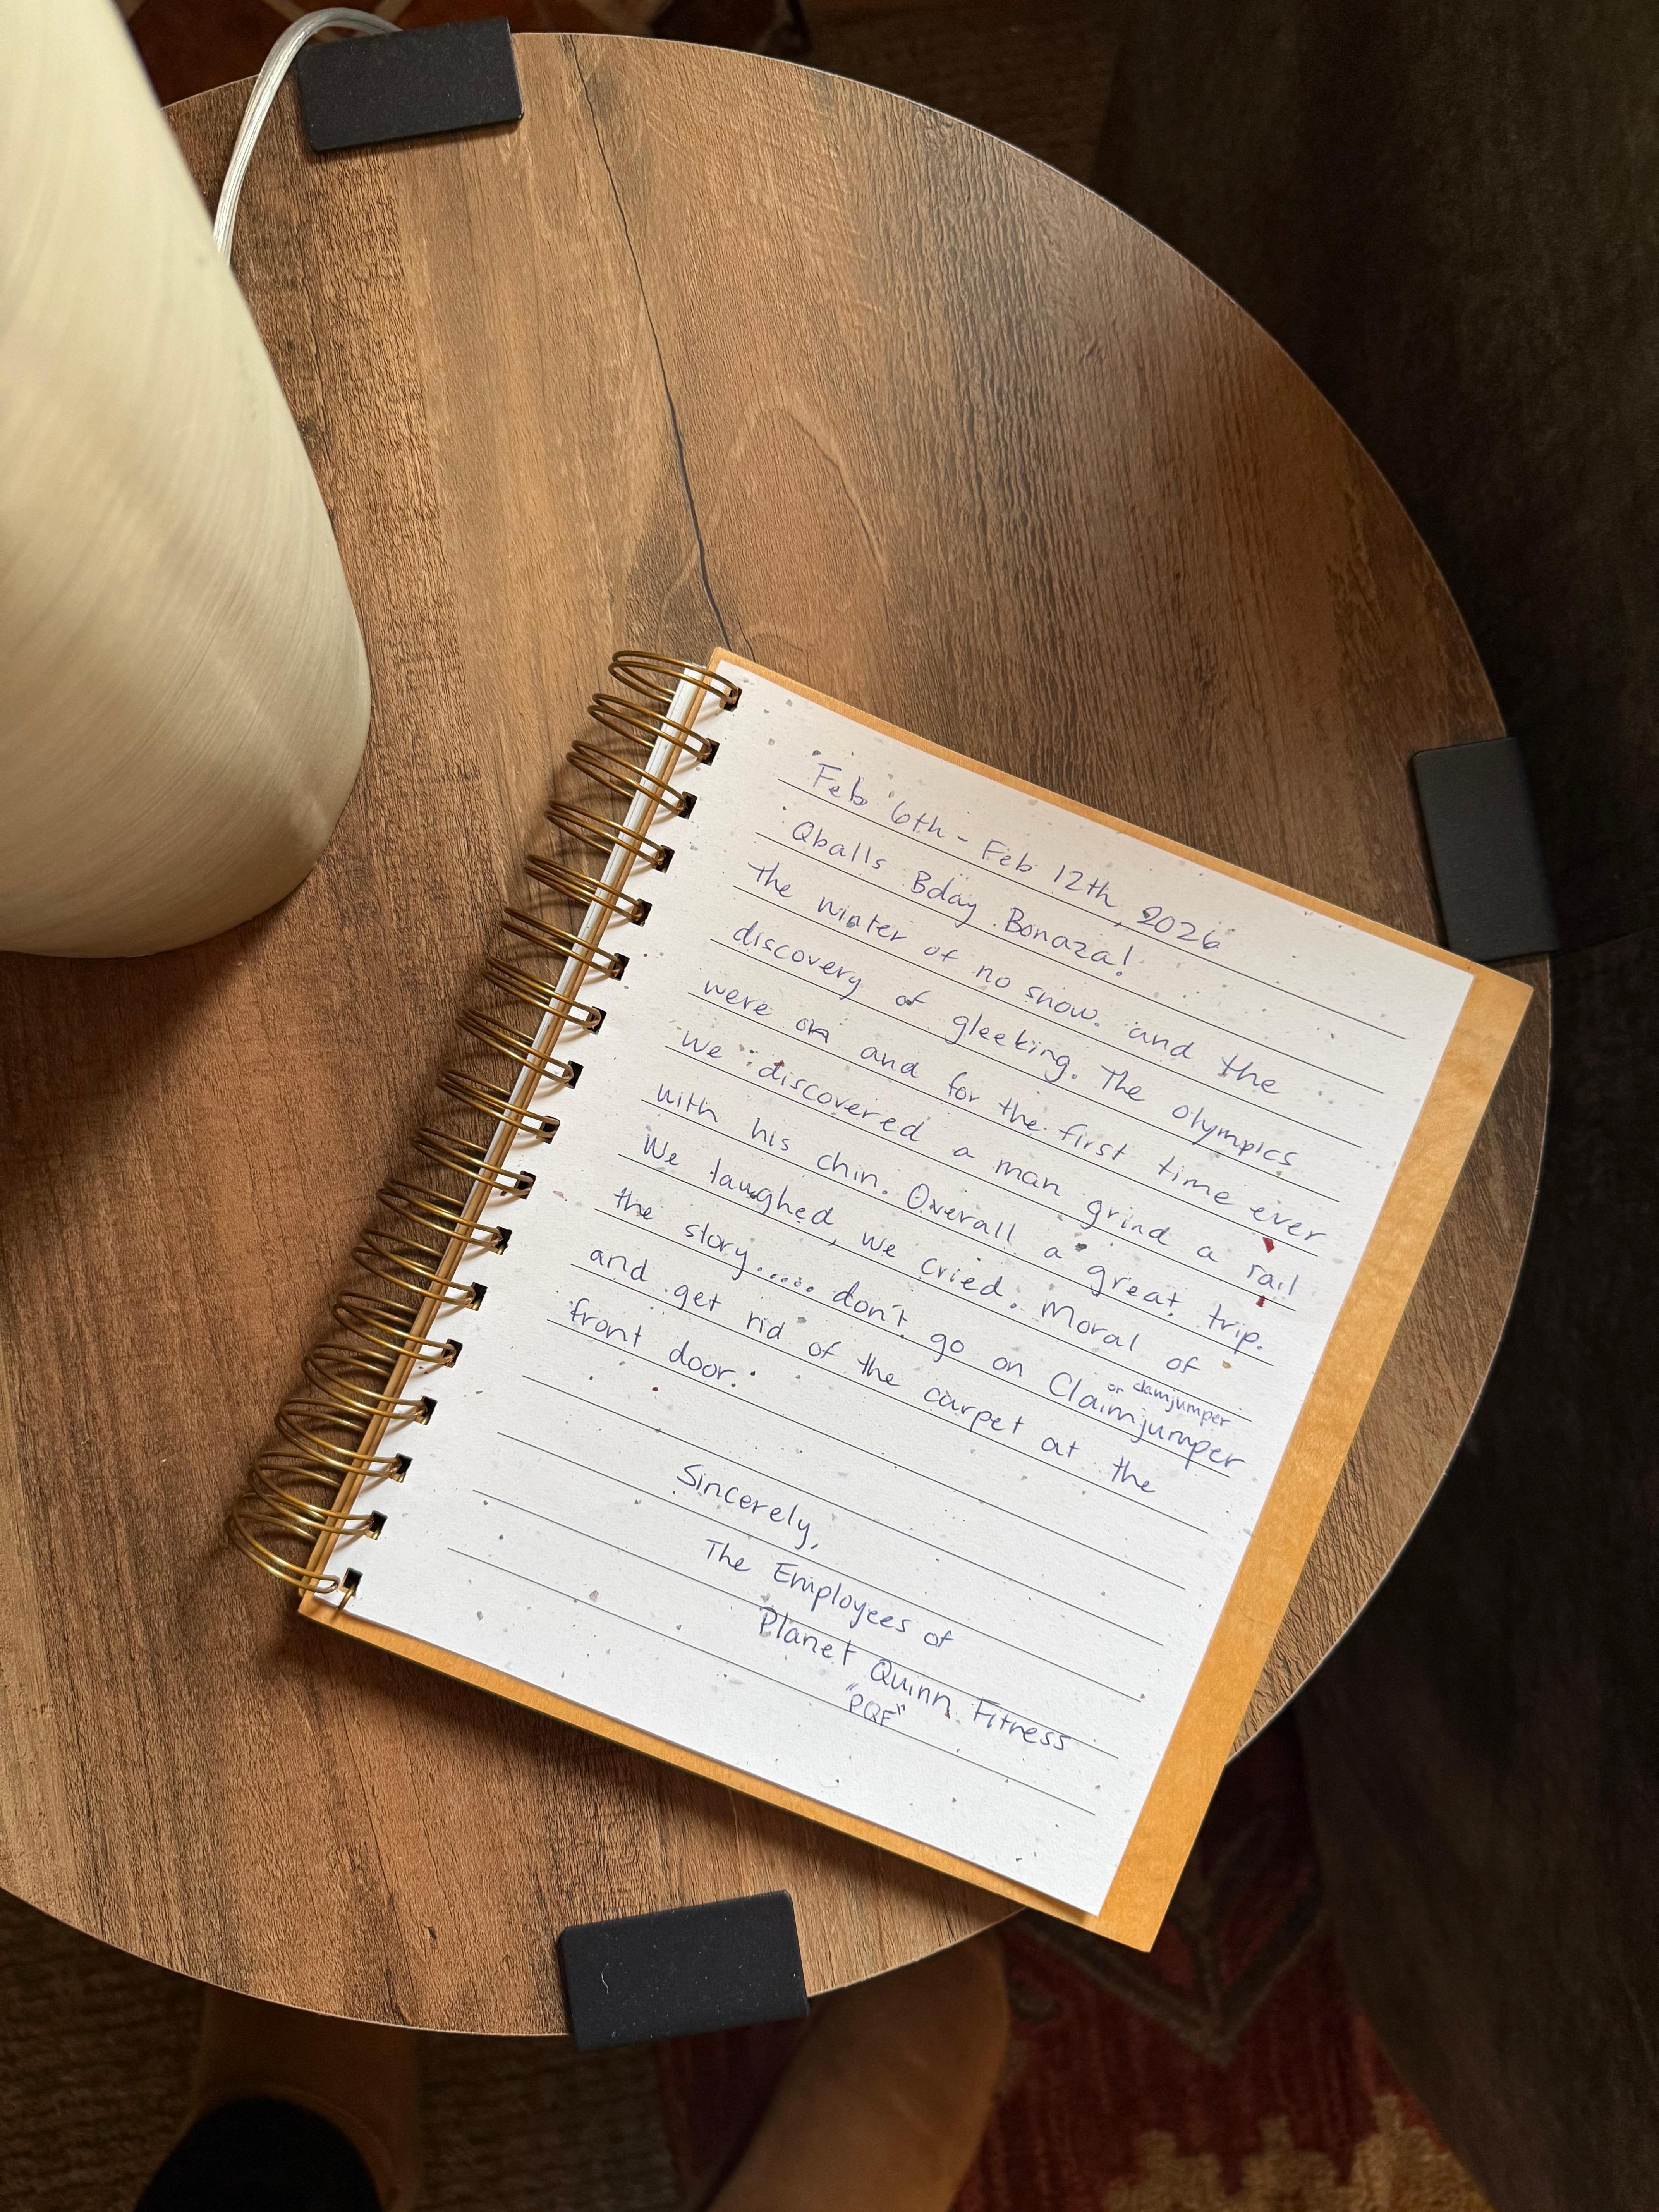 Feb 6th - Feb 12th, 2026
Qballs Bday Bonaza!
the winter of no snow and the
discovery of gleeking. The olympics
were on and for the first time ever
we discovered a man grind a rail
with his chin. Overall a great trip.
We laughed, we cried. Moral of
the story..... don't go on Claimjumper
or clamjumper
and get rid of the carpet at the
front door.
Sincerely,
The Employees of
Planet Quinn Fitness
"PQF"